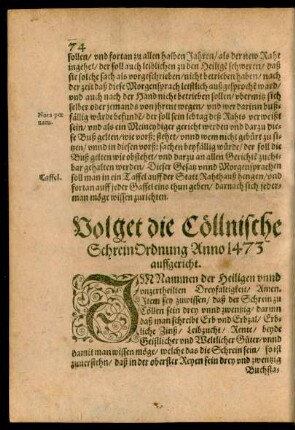 74
sollen / vnd fortan zu allen halben Jahren / als der new Raht
ingehet / der soll auch leiblichen zu den Heiligē schweren / daß
sie solche sach als vorgeschrieben / nicht betrieben haben / nach
der zeit daß diese Morgensprach leiblich außgesprochē ward /
vnd auch nach der Hand nicht betreiben sollen / vbermitz sich
selber oder jemands von jhrent wegen / vnd wer daran buß-
fällig würde befundē / der soll sein lebtag deß Rahts verweist
sein / vnd als ein Meineydiger gerichtet werden vnd dar zu die-
se Buß gelten / wie vorst: stehet / vnd wem nicht gehört zu si-
tzen / vnnd in diesen vorst: sachen beyfällig würde / der soll die
Buß gelten wie obstehet / vnd dar zu an allen Gerichtē zucht-
bar gehalten werden. Dieser Gesatz vnnd Morgensprachen
soll man in ein Taffel auff der Statt Rathauß hangen / vnd
fortan auff jeder Gaffel eins thun geben / darnach sich jeder-
man möge wissen zurichten.
Taffel.
Volget die Cöllnische
Schrein Ordnung Anno 1473
auffgericht.
IM Nammen der Heiligen vnnd
vnzertheilten Dreyfaltigkeit / Amen.
Item sey zuwissen / daß der Schrein zu
Cöllen sein drey vnnd zwentzig / darinn
daß man schreibt Erb vnd Erbzal / Erb-
liche Zinß / Leibzucht / Rente / beyde
Geistlicher vnd Weltlicher Güter / vnnd
damit man wissen möge / welche das die Schrein sein / so ist
zuuerstehn / daß in der oberster Reyen sein drey vnd zwentzig
Buchsta: